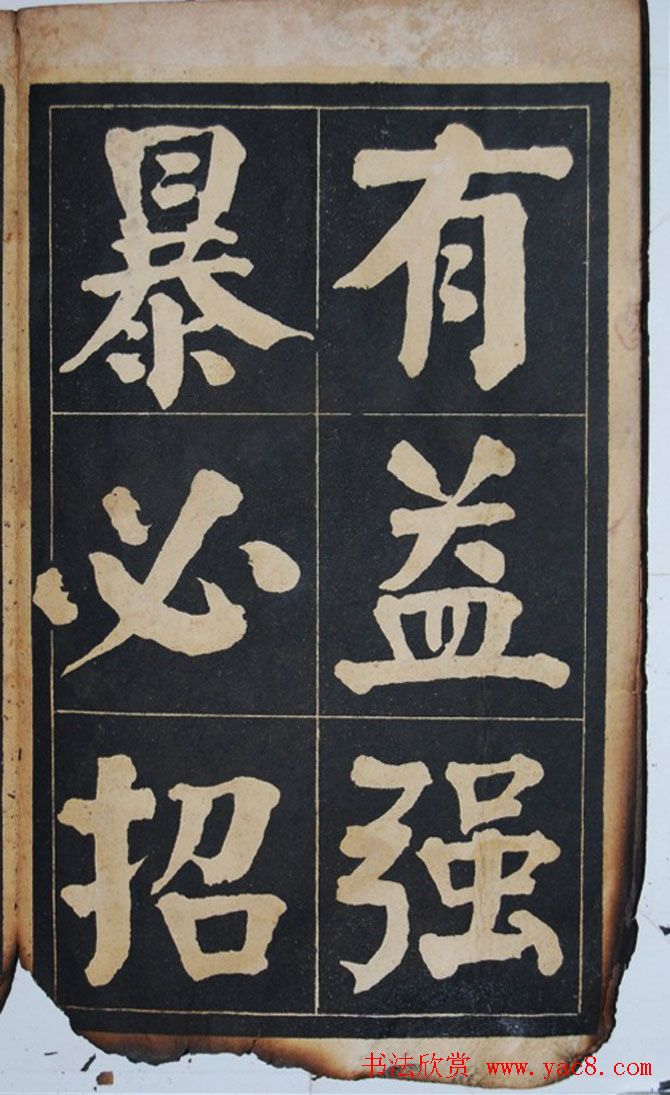 有益强
暴必招
书法欣赏 www.yac8.com